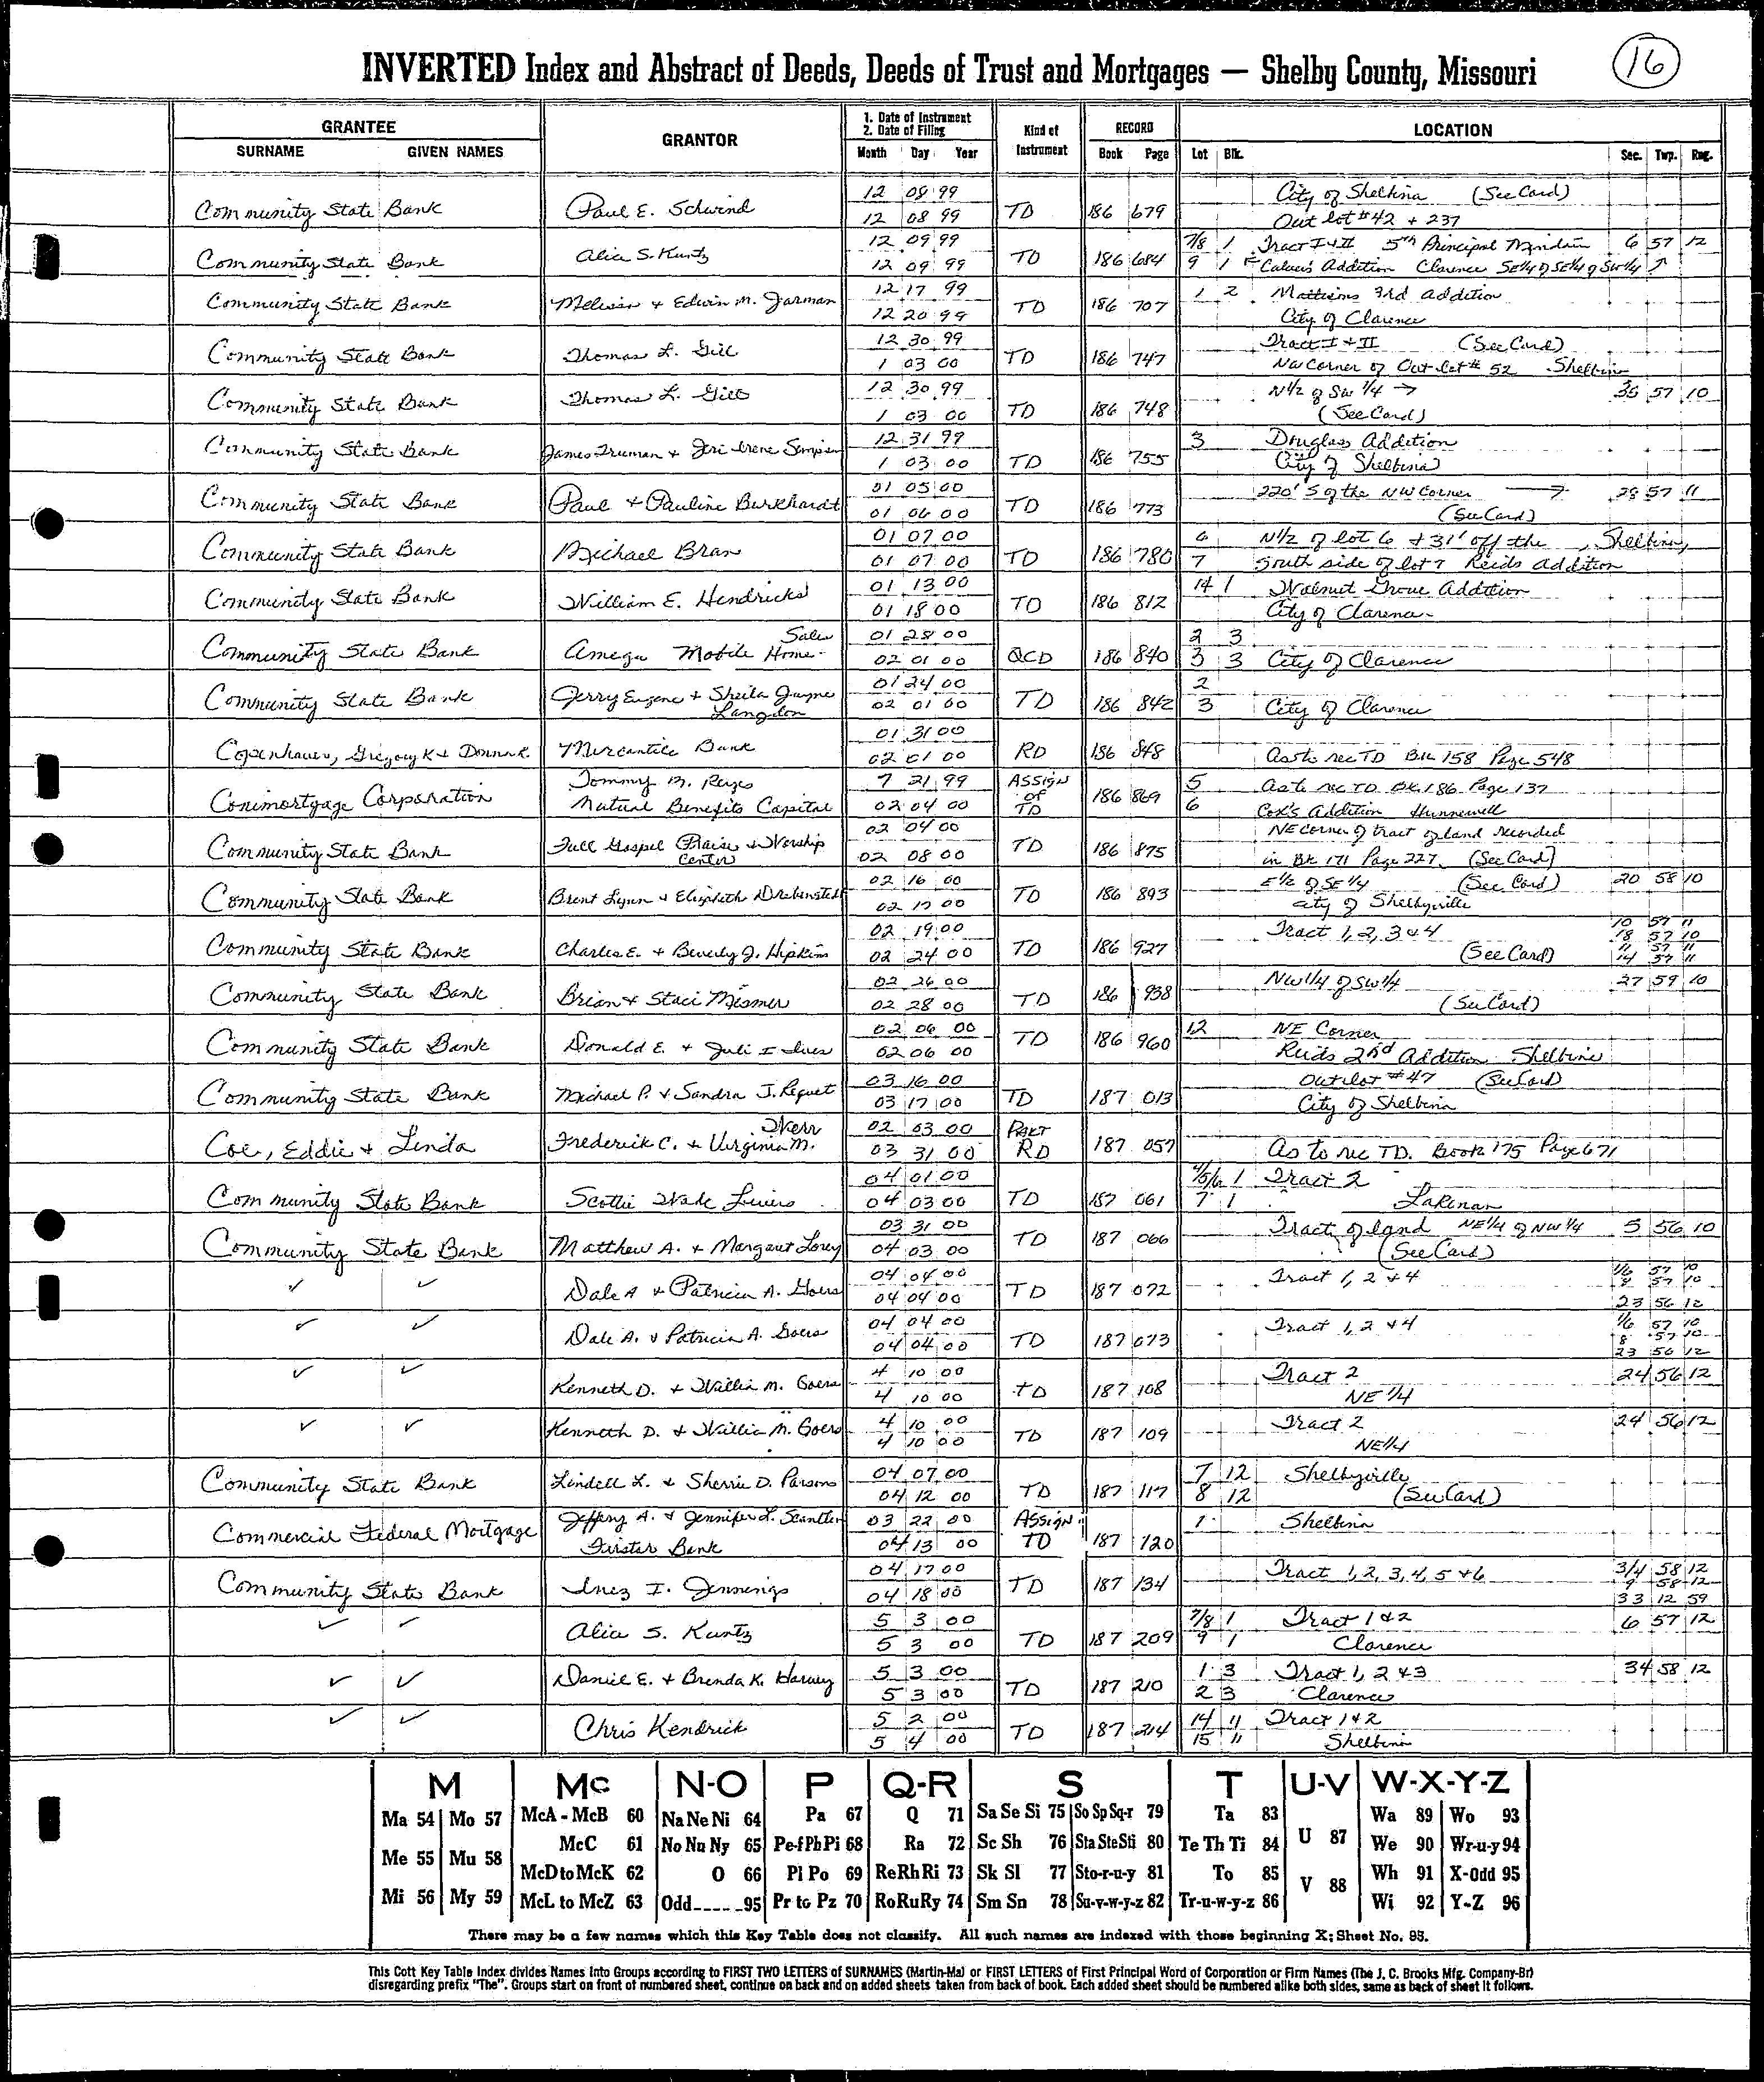 INVERTED Index and Abstract of Deeds, Deeds of Trust and Mortgages — Shelby County, Missouri 16
GRANTEE GRANTOR 1. Date of Instrument 2. Date of Filing Kind of Instrument RECORD LOCATION
SURNAME GIVEN NAMES Month Day Year Book Page Lot Blk. Sec. Twp. Rng.
12 08 99 City of Shelbina (See Card)
Community State Bank Paul E. Schwind 12 08 99 TD 186 679 Out lot #42 + 237
12 09 99 7/8 1 Tract I + II 5th Principal 6 57 12
Community State Bank Alice S. Kuntz 12 09 99 TD 186 684 9 1 Addition Clarence SE1/4 of SE1/4 of SW1/4 ↑
12 17 99 1 2 3rd Addition
Community State Bank Melissa + Edwin M. Jarman 12 20 99 TD 186 707 City of Clarence
12 30 99 Tract I + II (See Card)
Community State Bank Thomas L. Gill 1 03 00 TD 186 747 NW Corner of Out Lot # 52 Shelbina
12 30 99 N1/2 of SW 1/4 → 36 57 10
Community State Bank Thomas L. Gill 1 03 00 TD 186 748 (See Card)
12 31 99 3 Douglass Addition
Community State Bank James Truman + Jeri Irene Simpson 1 03 00 TD 186 755 City of Shelbina
01 05 00 220' S of the NW Corner → 28 57 11
Community State Bank Paul + Pauline Burkhardt 01 06 00 TD 186 773 (See Card)
01 07 00 6 N1/2 of lot 6 + 31' off the , Shelbina,
Community State Bank Michael Bran 01 07 00 TD 186 780 7 South side of lot 7 Reids Addition
01 13 00 14 1 Walnut Grove Addition
Community State Bank William E. Hendricks 01 18 00 TD 186 812 City of Clarence
Sales 01 28 00 2 3
Community State Bank Amega Mobile Home 02 01 00 QCD 186 840 3 3 City of Clarence
01 24 00 2
Community State Bank Jerry Eugene + Sheila Jayne Langdon 02 01 00 TD 186 842 3 City of Clarence
01 31 00
Copenhaver, Gregory K + Donna K. Mercantile Bank 02 01 00 RD 186 848 As to rec TD Bk 158 Page 548
Tommy M. 7 21 99 Assign of TD 5 As to rec TD Bk 186 Page 137
Conimortgage Corporation Mutual Benefits Capital 02 04 00 186 869 6 Cox's Addition Hunnewell
02 04 00 NE Corner of tract of land recorded
Community State Bank Full Gospel Praise + Worship Center 02 08 00 TD 186 875 in Bk 171 Page 227 (See Card)
02 16 00 E1/2 of SE1/4 (See Card) 20 58 10
Community State Bank Brent Lynn + Elizabeth Drebenstedt 02 17 00 TD 186 893 City of Shelbyville
02 19 00 Tract 1, 2, 3 + 4 10 57 11
18 57 10
11 57 11
Community State Bank Charles E. + Beverly J. Hipkins 02 24 00 TD 186 927 (See Card) 14 57 11
02 26 00 NW1/4 of SW1/4 27 59 10
Community State Bank Brian + Staci Mismer 02 28 00 TD 186 938 (See Card)
02 06 00 12 NE Corner
Community State Bank Donald E. + Juli I 02 06 00 TD 186 960 Reids 2nd Addition Shelbina
03 16 00 Outlot #47 (See Card)
Community State Bank Michael P. + Sandra J. Requet 03 17 00 TD 187 013 City of Shelbina
Kerr 02 03 00 Part
Coe, Eddie + Linda Frederick C. + Virginia M. 03 31 00 RD 187 057 As to rec TD. Book 175 Page 671
04 01 00 4/5/6 1 Tract 2
Community State Bank Scottie Wade 04 03 00 TD 187 061 7 1 Lakenan
03 31 00 Tract of land NE1/4 of NW1/4 5 56 10
Community State Bank Matthew A. + Margaret 04 03 00 TD 187 066 (See Card)
✓ ✓ 04 04 00 Tract 1, 2 + 4 1/6 57 10
8 57 10
Dale A + Patricia A. Goers 04 04 00 TD 187 072 23 56 12
✓ ✓ 04 04 00 Tract 1, 2 + 4 1/6 57 10
8 57 10
Dale A. + Patricia A. Goers 04 04 00 TD 187 073 23 56 12
✓ ✓ 4 10 00 Tract 2 24 56 12
Kenneth D. + Willia M. Goers 4 10 00 TD 187 108 NE 1/4
✓ ✓ 4 10 00 Tract 2 24 56 12
Kenneth D. + Willia M. Goers 4 10 00 TD 187 109 NE1/4
04 07 00 7 12 Shelbyville
Community State Bank Lindell L. + Sherrie D. Parsons 04 12 00 TD 187 117 8 12 (See Card)
Jeffery A. + Jennifer L. 03 22 00 Assign 1 Shelbina
Commercial Federal Mortgage Firstar Bank 04 13 00 TD 187 120
04 17 00 Tract 1, 2, 3, 4, 5 + 6 3/4 58 12
9 58 12
Community State Bank Inez I. Jennings 04 18 00 TD 187 134 33 12 59
✓ ✓ 5 3 00 7/8 1 Tract 1 & 2 6 57 12
Alice S. Kuntz 5 3 00 TD 187 209 9 1 Clarence
✓ ✓ 5 3 00 1 3 Tract 1, 2 + 3 34 58 12
Daniel E. + Brenda K. Harvey 5 3 00 TD 187 210 2 3 Clarence
✓ ✓ 5 2 00 14 11 Tract 1 + 2
Chris Kendrick 5 4 00 TD 187 214 15 11 Shelbina
M Mc N-O P Q-R S T U-V W-X-Y-Z
Ma 54 Mo 57 McA - McB 60 Na Ne Ni 64 Pa 67 Q 71 Sa Se Si 75 So Sp Sq-r 79 Ta 83 U 87 Wa 89 Wo 93
Me 55 Mu 58 McC 61 No Nu Ny 65 Pe-f Ph Pi 68 Ra 72 Sc Sh 76 Sta Ste Sti 80 Te Th Ti 84 We 90 Wr-u-y 94
McD to McK 62 O 66 Pl Po 69 Re Rh Ri 73 Sk Sl 77 Sto-r-u-y 81 To 85 V 88 Wh 91 X-Odd 95
Mi 56 My 59 McL to McZ 63 Odd 95 Pr to Pz 70 Ro Ru Ry 74 Sm Sn 78 Su-v-w-y-z 82 Tr-u-w-y-z 86 Wi 92 Y-Z 96
There may be a few names which this Key Table does not classify. All such names are indexed with those beginning X; Sheet No. 95.
This Cott Key Table Index divides Names into Groups according to FIRST TWO LETTERS of SURNAMES (Martin-Ma) or FIRST LETTERS of First Principal Word of Corporation or Firm Names (The J. C. Brooks Mfg. Company-Br)
disregarding prefix "The". Groups start on front of numbered sheet, continue on back and on added sheets taken from back of book. Each added sheet should be numbered alike both sides, same as back of sheet it follows.